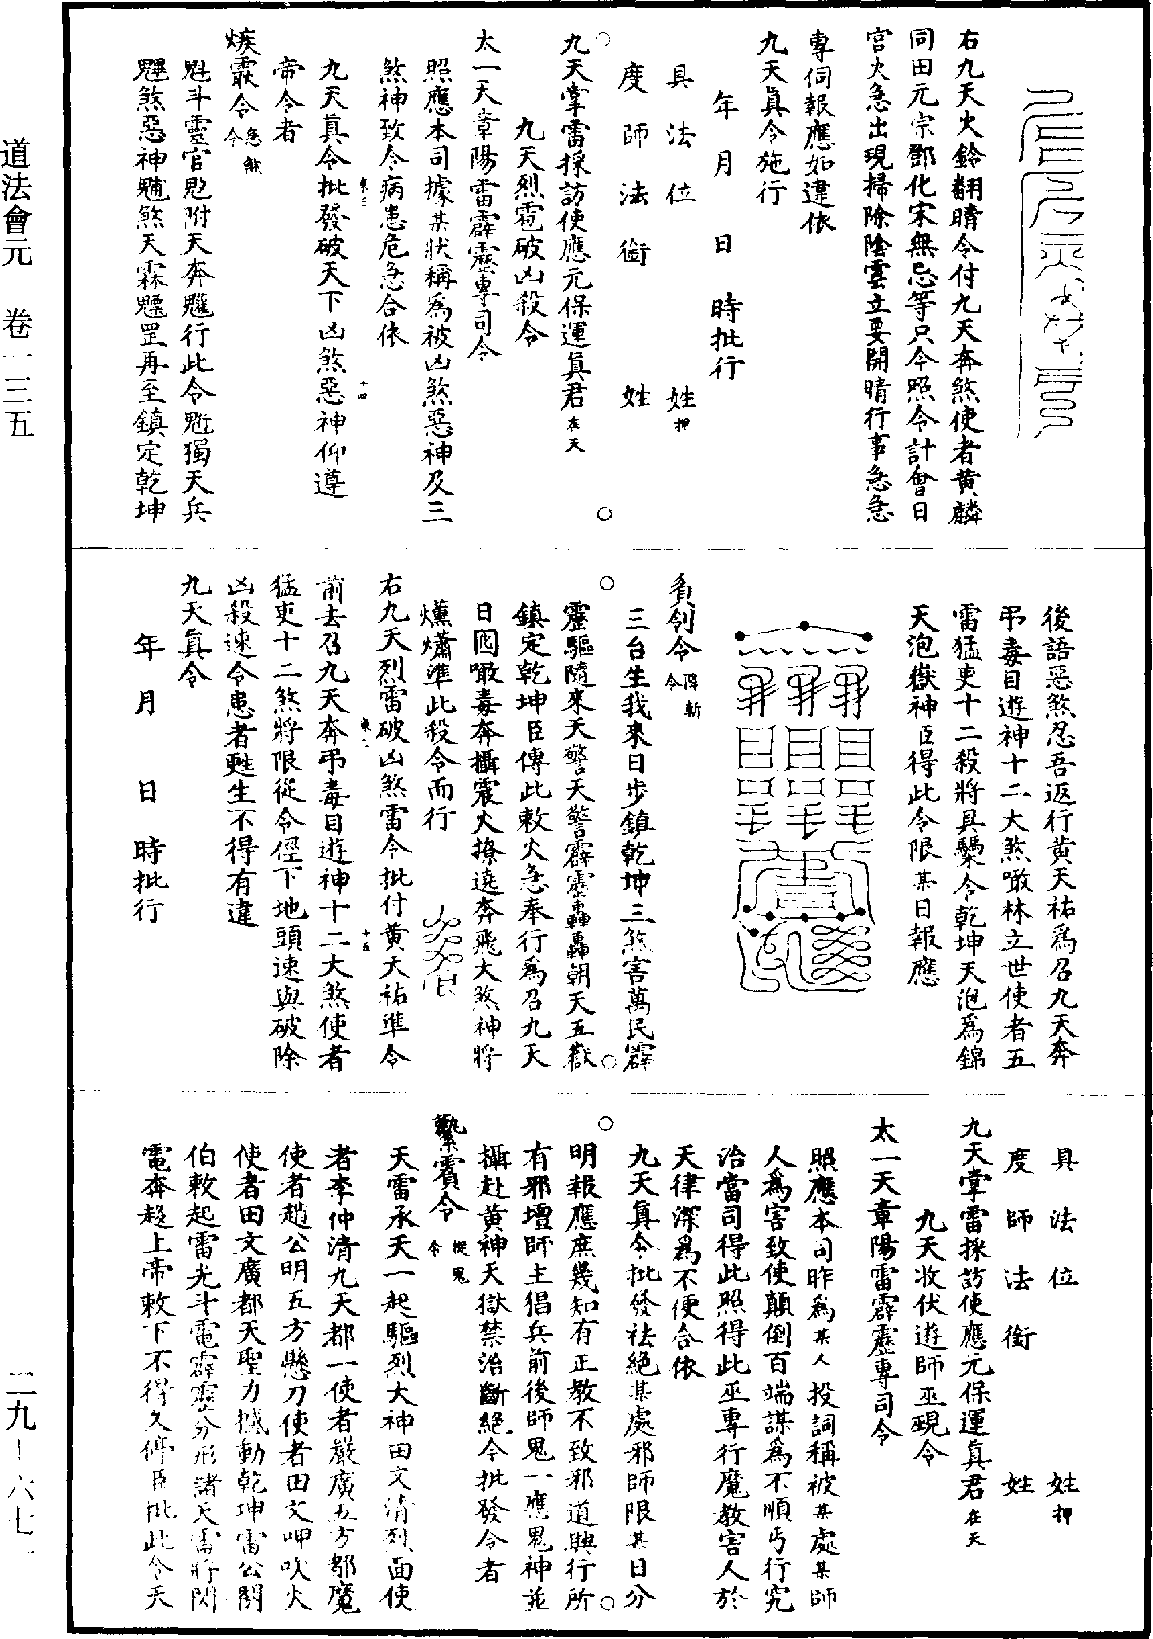 道法會元 卷一三五
二九—六七一
右九天火鈴翻晴令付九天奔煞使者黄麟
同田元宗鄧化宋無忌等只今照令計會日
宫火急出現掃除陰雲立要開晴行事急急
專伺報應如違依
九天真令施行
年 月 日 時批行
具法位 姓押
度師法銜 姓
九天掌雷採訪使應元保運真君在天
九天烈雹破凶殺令
太一天章陽雷霹靂專司令
照應本司據某狀稱為被凶煞惡神及三
煞神致令病患危急合依
九天真令批發破天下凶煞惡神仰遵
帝令者
令急煞令
魁斗靈官 附天奔 行此令 獨天兵
煞惡神 煞天霖 罡再至鎮定乾坤
後語惡煞忍吾返行黄天祐為召九天奔
弔毒目遊神十二大煞噉林立世使者五
雷猛吏十二殺將具 令乾坤天泡為錦
天泡嶽神臣得此令限某日報應
令降斬令
三台生我來日步鎮乾坤三煞害萬民霹
靂驅隨來天警天警霹靂轟轟朝天五嶽
鎮定乾坤臣傳此敕火急奉行為召九天
日 噉毒奔攝震火撩遶奔飛大煞神將
準此殺令而行
右九天烈雷破凶煞雷令批付黄天祐準令
前去召九天奔弔毒目遊神十二大煞使者
猛吏十二煞將限從令徑下地頭速與破除
凶殺速令患者甦生不得有違
九天真令
年 月 日 時批行
具法位 姓押
度師法銜 姓
九天掌雷採訪使應元保運真君在天
九天收伏遊師巫覡令
太一天章陽雷霹靂專司令
照應本司昨為某人投詞稱被某處某師
人為害致使顛倒百端謀為不順丐行究
治當司得此照得此巫專行魔教害人於
天律深為不便合依
九天真令批發祛絕某處邪師限某日分
明報應庶幾知有正教不致邪道興行所
有邪壇師主倡兵前後師鬼一應鬼神並
攝赴黄神天獄禁治斷絕令批發令者
令 鬼令
天雷承天一起驅烈大神田文清烈面使
者李仲清九天都一使者嚴廣五方都魔
使者趙公明五方懸刀使者田文呷吹火
使者田文廣都天聖力撼動乾坤雷公闊
伯敕起雷光斗電霹靂分形諸天雷將閃
電奔趍上帝敕下不得久停臣批此令天